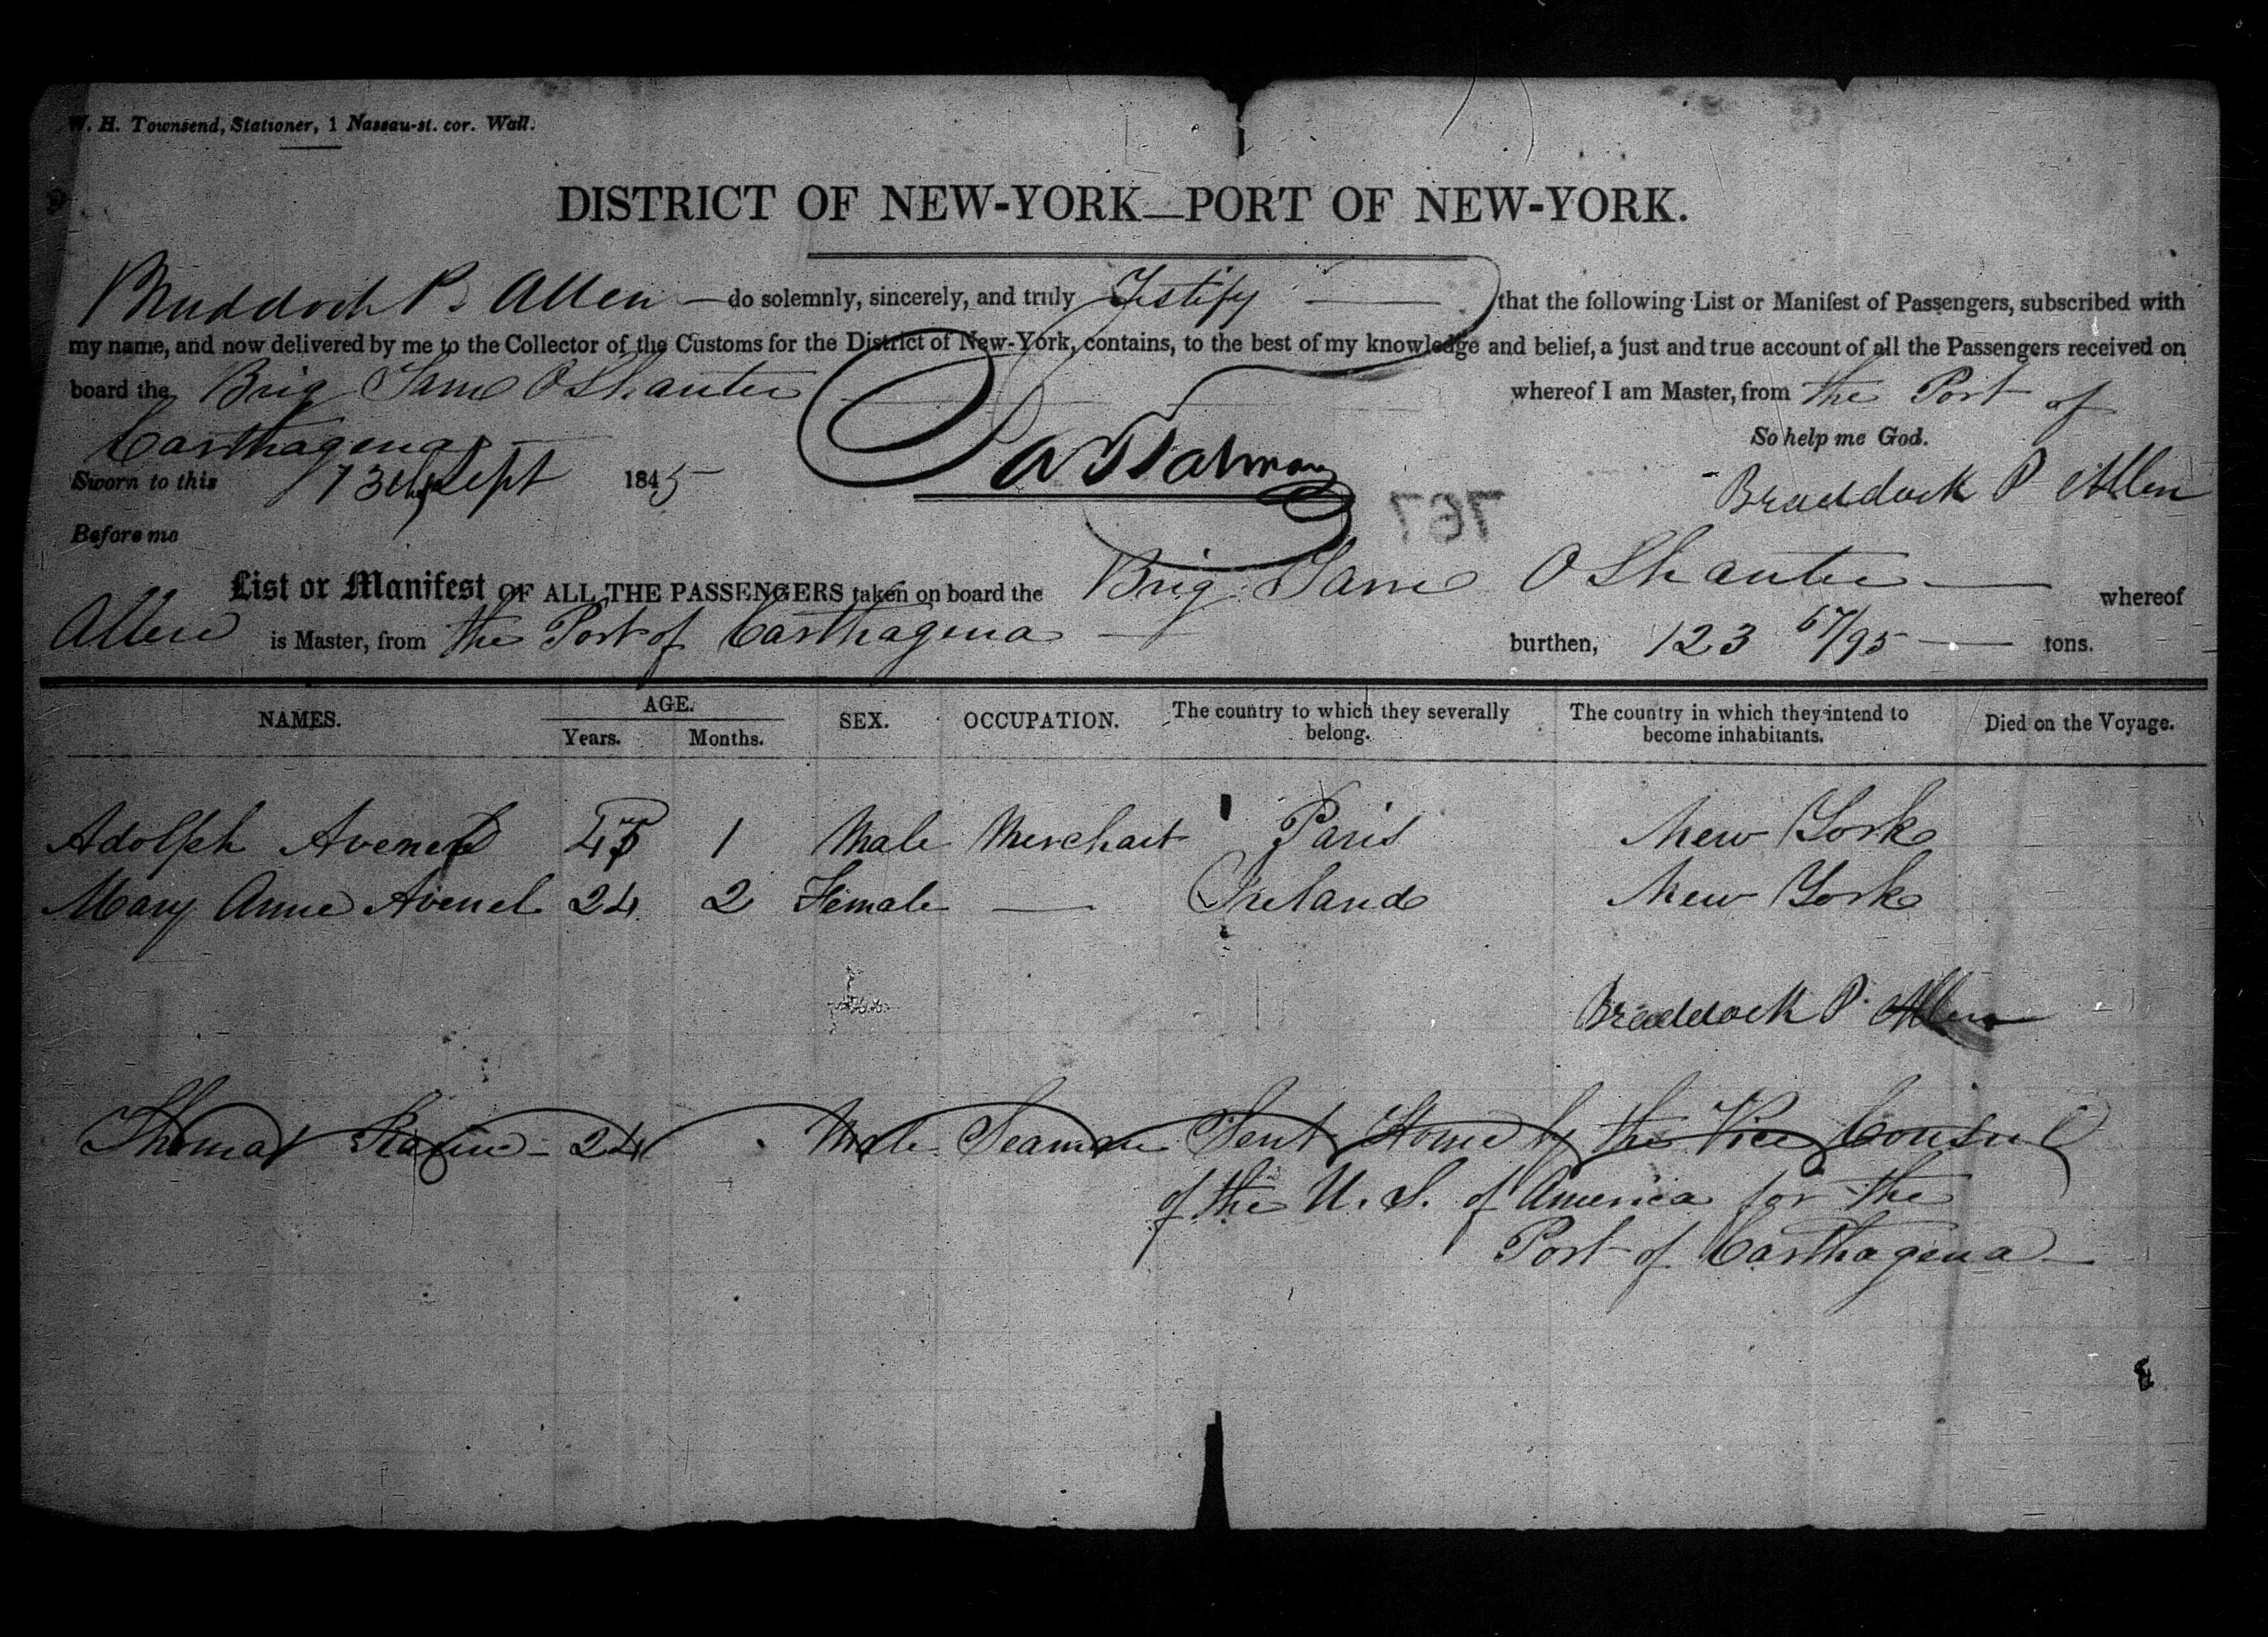 W. H. Townsend, Stationer, 1 Nassau-st. cor. Wall.
DISTRICT OF NEW-YORK—PORT OF NEW-YORK.
Braddock P. Allen — do solemnly, sincerely, and truly Testify — that the following List or Manifest of Passengers, subscribed with
my name, and now delivered by me to the Collector of the Customs for the District of New-York, contains, to the best of my knowledge and belief, a just and true account of all the Passengers received on
board the Brig Tam O Shanter whereof I am Master, from the Port of
Carthagena So help me God.
Sworn to this 13th Sept 1845 Braddock P Allen
767
Before me
List or Manifest OF ALL THE PASSENGERS taken on board the Brig Tam O Shanter — whereof
Allen is Master, from the Port of Carthagena — burthen, 123 67/95 — tons.
NAMES. AGE. Years. Months. SEX. OCCUPATION. The country to which they severally belong. The country in which they intend to become inhabitants. Died on the Voyage.
Adolph Avenel 1 Male Merchant Paris New York
Mary Anne Avenel 24 2 Female — Ireland New York
Braddock P. Allen
Thomas 24 Male Seaman Sent Home by the Vice Consul
of the U. S. of America for the
Port of Carthagena